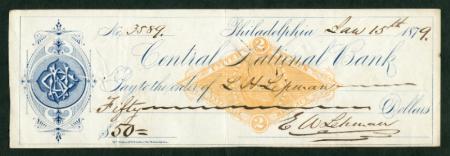 No. 3589. Philadelphia Jan 15th 1879.
Central National Bank
Pay to the order of L H Lipman
Fifty Dollars
$50=
E W Lehman
2
2